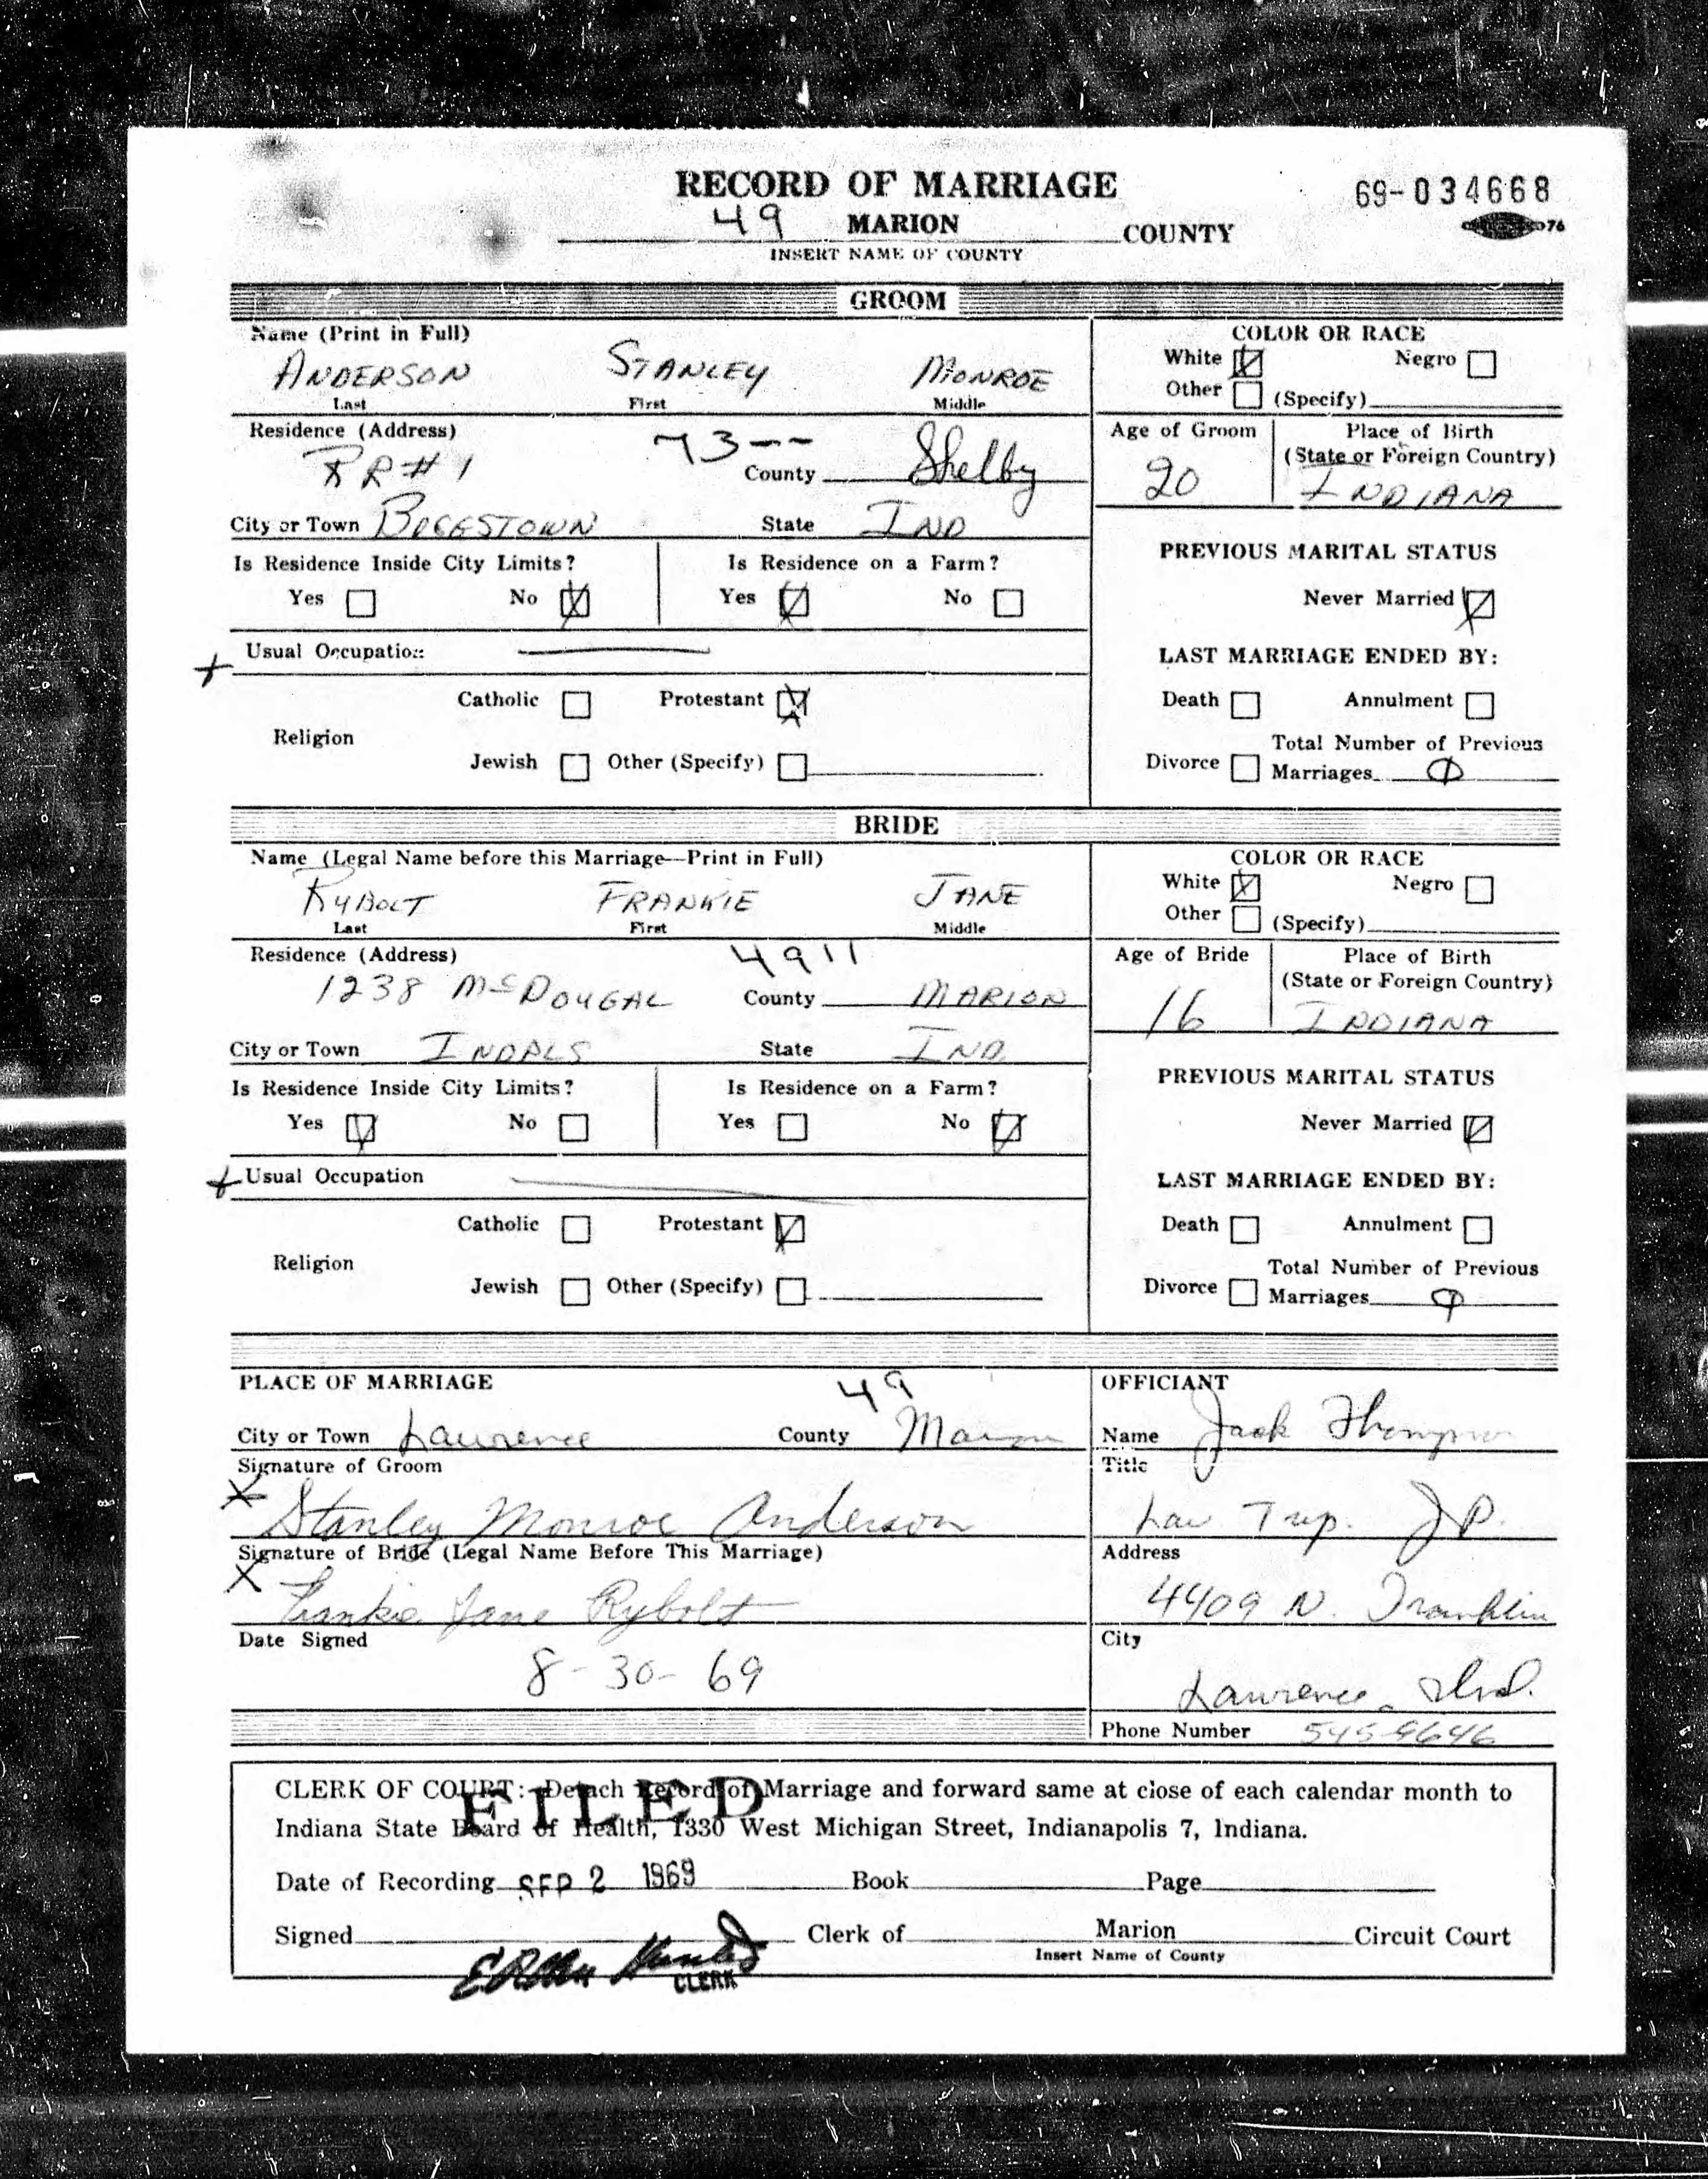 RECORD OF MARRIAGE
69-034668
49 MARION COUNTY
76
INSERT NAME OF COUNTY
GROOM
Name (Print in Full)
ANDERSON STANLEY MONROE
Last First Middle
COLOR OR RACE
White Negro
Other (Specify)
Residence (Address)
RR#1
73--
County Shelby
Age of Groom
20
Place of Birth
(State or Foreign Country)
INDIANA
City or Town BOGGSTOWN State IND
Is Residence Inside City Limits? Is Residence on a Farm?
Yes No Yes No
PREVIOUS MARITAL STATUS
Never Married
Usual Occupation
LAST MARRIAGE ENDED BY:
Catholic Protestant
Religion
Jewish Other (Specify)
Death Annulment
Total Number of Previous
Divorce Marriages 0
BRIDE
Name (Legal Name before this Marriage—Print in Full)
RYBOLT FRANKIE JANE
Last First Middle
COLOR OR RACE
White Negro
Other (Specify)
Residence (Address)
1238 McDOUGAL
4911
County MARION
Age of Bride
16
Place of Birth
(State or Foreign Country)
INDIANA
City or Town INDPLS State IND.
Is Residence Inside City Limits? Is Residence on a Farm?
Yes No Yes No
PREVIOUS MARITAL STATUS
Never Married
Usual Occupation
LAST MARRIAGE ENDED BY:
Catholic Protestant
Religion
Jewish Other (Specify)
Death Annulment
Total Number of Previous
Divorce Marriages 0
PLACE OF MARRIAGE
49
City or Town Lawrence County Marion
OFFICIANT
Name Jack Thompson
Signature of Groom
X Stanley Monroe Anderson
Title
Law Twp. J.P.
Signature of Bride (Legal Name Before This Marriage)
X Frankie Jane Rybolt
Address
4409 N. Franklin
Date Signed
8-30-69
City
Lawrence, Ind.
Phone Number 545-4646
CLERK OF COURT: Detach Record of Marriage and forward same at close of each calendar month to
FILED
Indiana State Board of Health, 1330 West Michigan Street, Indianapolis 7, Indiana.
Date of Recording SEP 2 1969 Book Page
Signed Clerk of Marion Circuit Court
Insert Name of County
CLERK